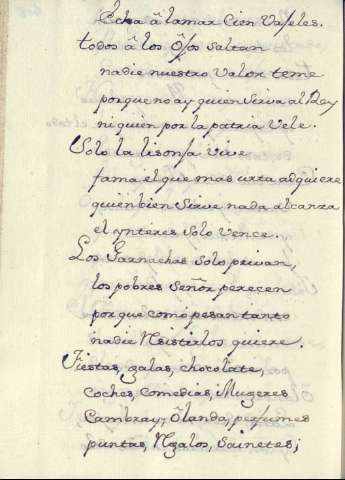 Echa â la mar Cien Vaseles.
todos â los Ôjos saltan
nadie nuestro Valor teme
porque no ay quien Sirva al Rey
ni quien por la patria Vele.
Solo la lisonja vive
fama el que mas urta adquiere
quien bien Sirve nada alcanza
el ynteres Solo Vence.
Los Garnachas Solo privan,
los pobres Señor pereçen
porque como pesan tanto
nadie Resistirlos quiere.
Fiestas, galas, chocolate,
coches, comedias, Mugeres
Cambray, Ôlanda, perfumes
puntas, Regalos, Sainetes;